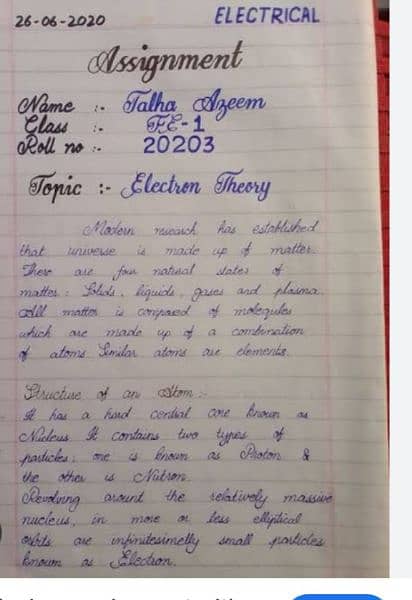 26-06-2020 ELECTRICAL
Assignment
Name :- Talha Azeem
Class :- FE-1
Roll no :- 20203
Topic :- Electron Theory
Modern research has established
that universe is made up of matter.
There are four natural states of
matter: Solids, liquids, gases and plasma.
All matter is composed of molequles
which are made up of a combination
of atoms Similar atoms are elements.
Structure of an Atom :-
It has a hard central core known as
Nucleus It contains two types of
particles; one is known as Proton &
the other is Nutron.
Revolving around the relatively massive
nucleus, in more or less elliptical
orbits are infinitesimelly small particles
known as Electron.